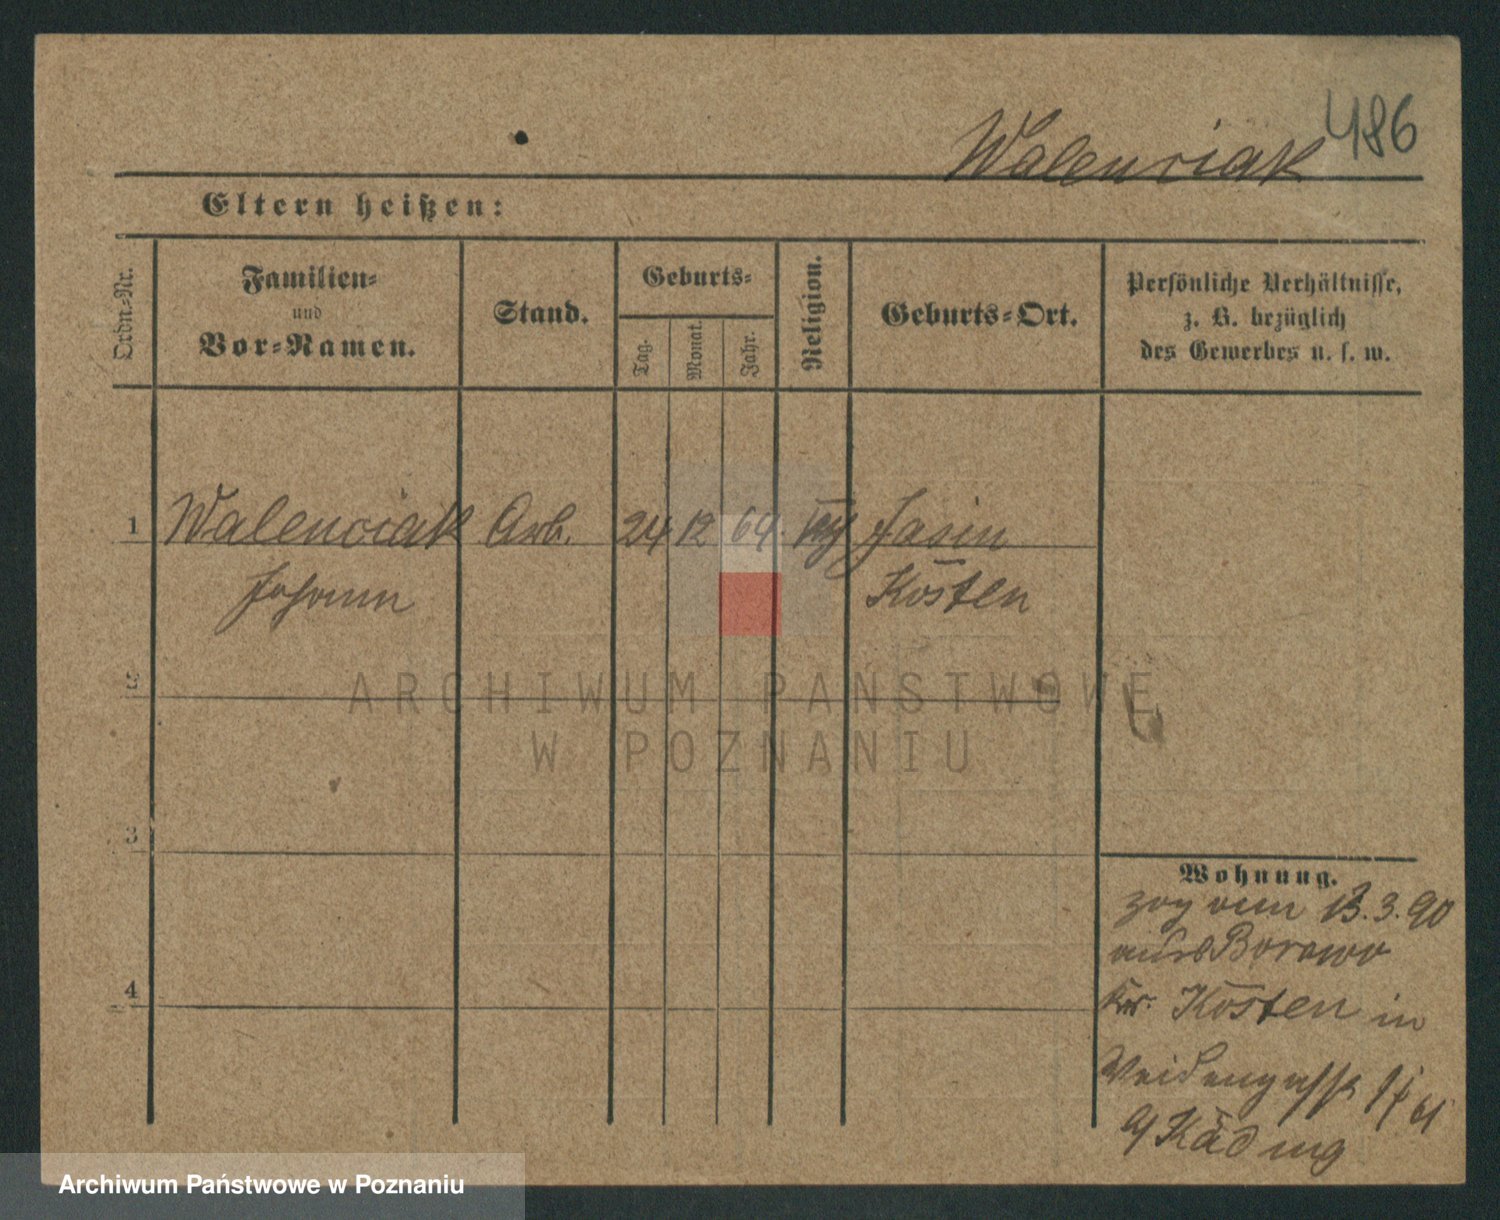 486
Walenciak
Eltern heißen:
Ordn.-Nr.
Familien-
und
Vor-Namen.
Stand.
Geburts-
Tag.
Monat.
Jahr.
Religion.
Geburts-Ort.
Persönliche Verhältnisse,
z. B. bezüglich
des Gewerbes u. s. w.
1 Walenciak Arb. 24 12 64. Jasin
Johann Kosten
2
3
4
Wohnung.
zog am 13.3.90
aus Borowo
Kr. Kosten in
Weidengasse
Käding
ARCHIWUM PAŃSTWOWE
W POZNANIU
Archiwum Państwowe w Poznaniu